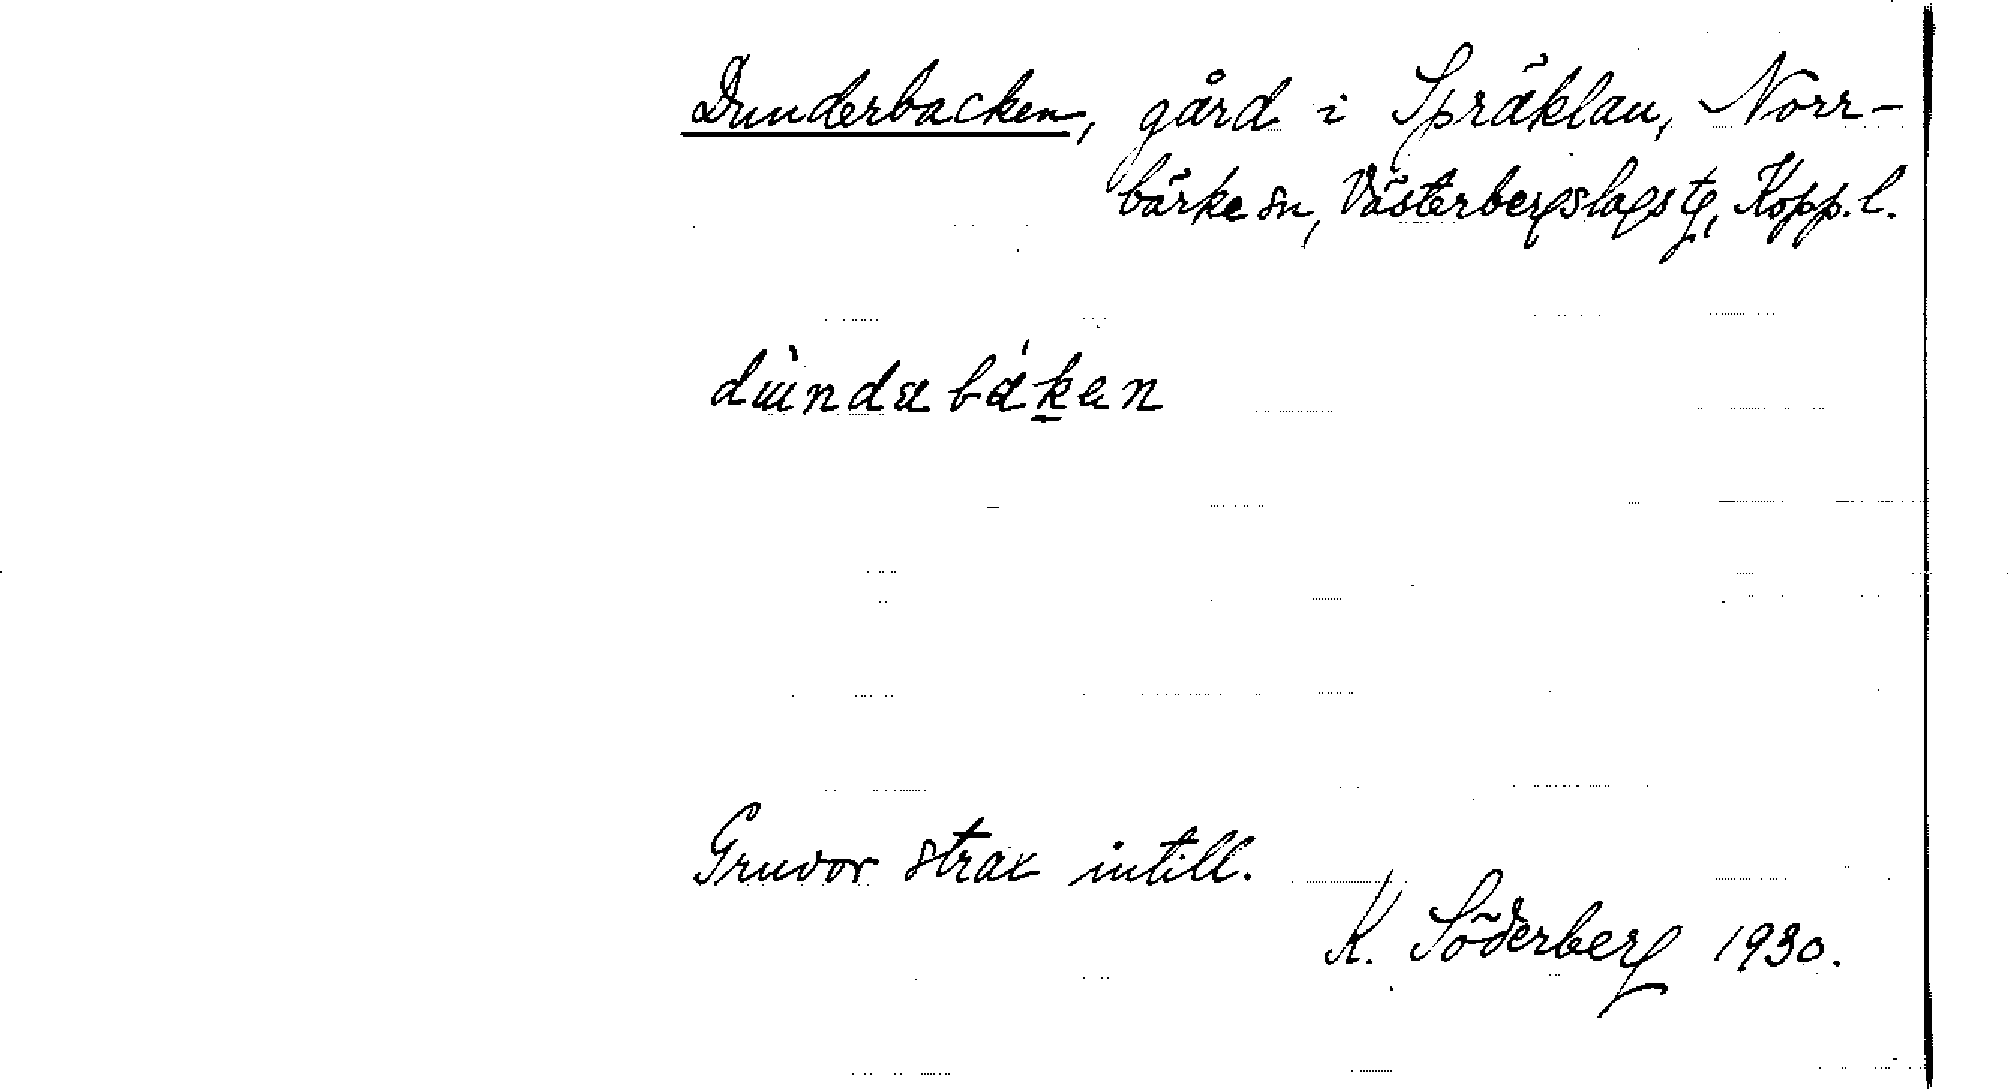 Dunderbacken, gård i Spräklan, Norr-
bärke sn, Västerbergslags tg, Kopp. l.
dùndabákan
Gruvor strax intill.
K. Söderberg 1930.